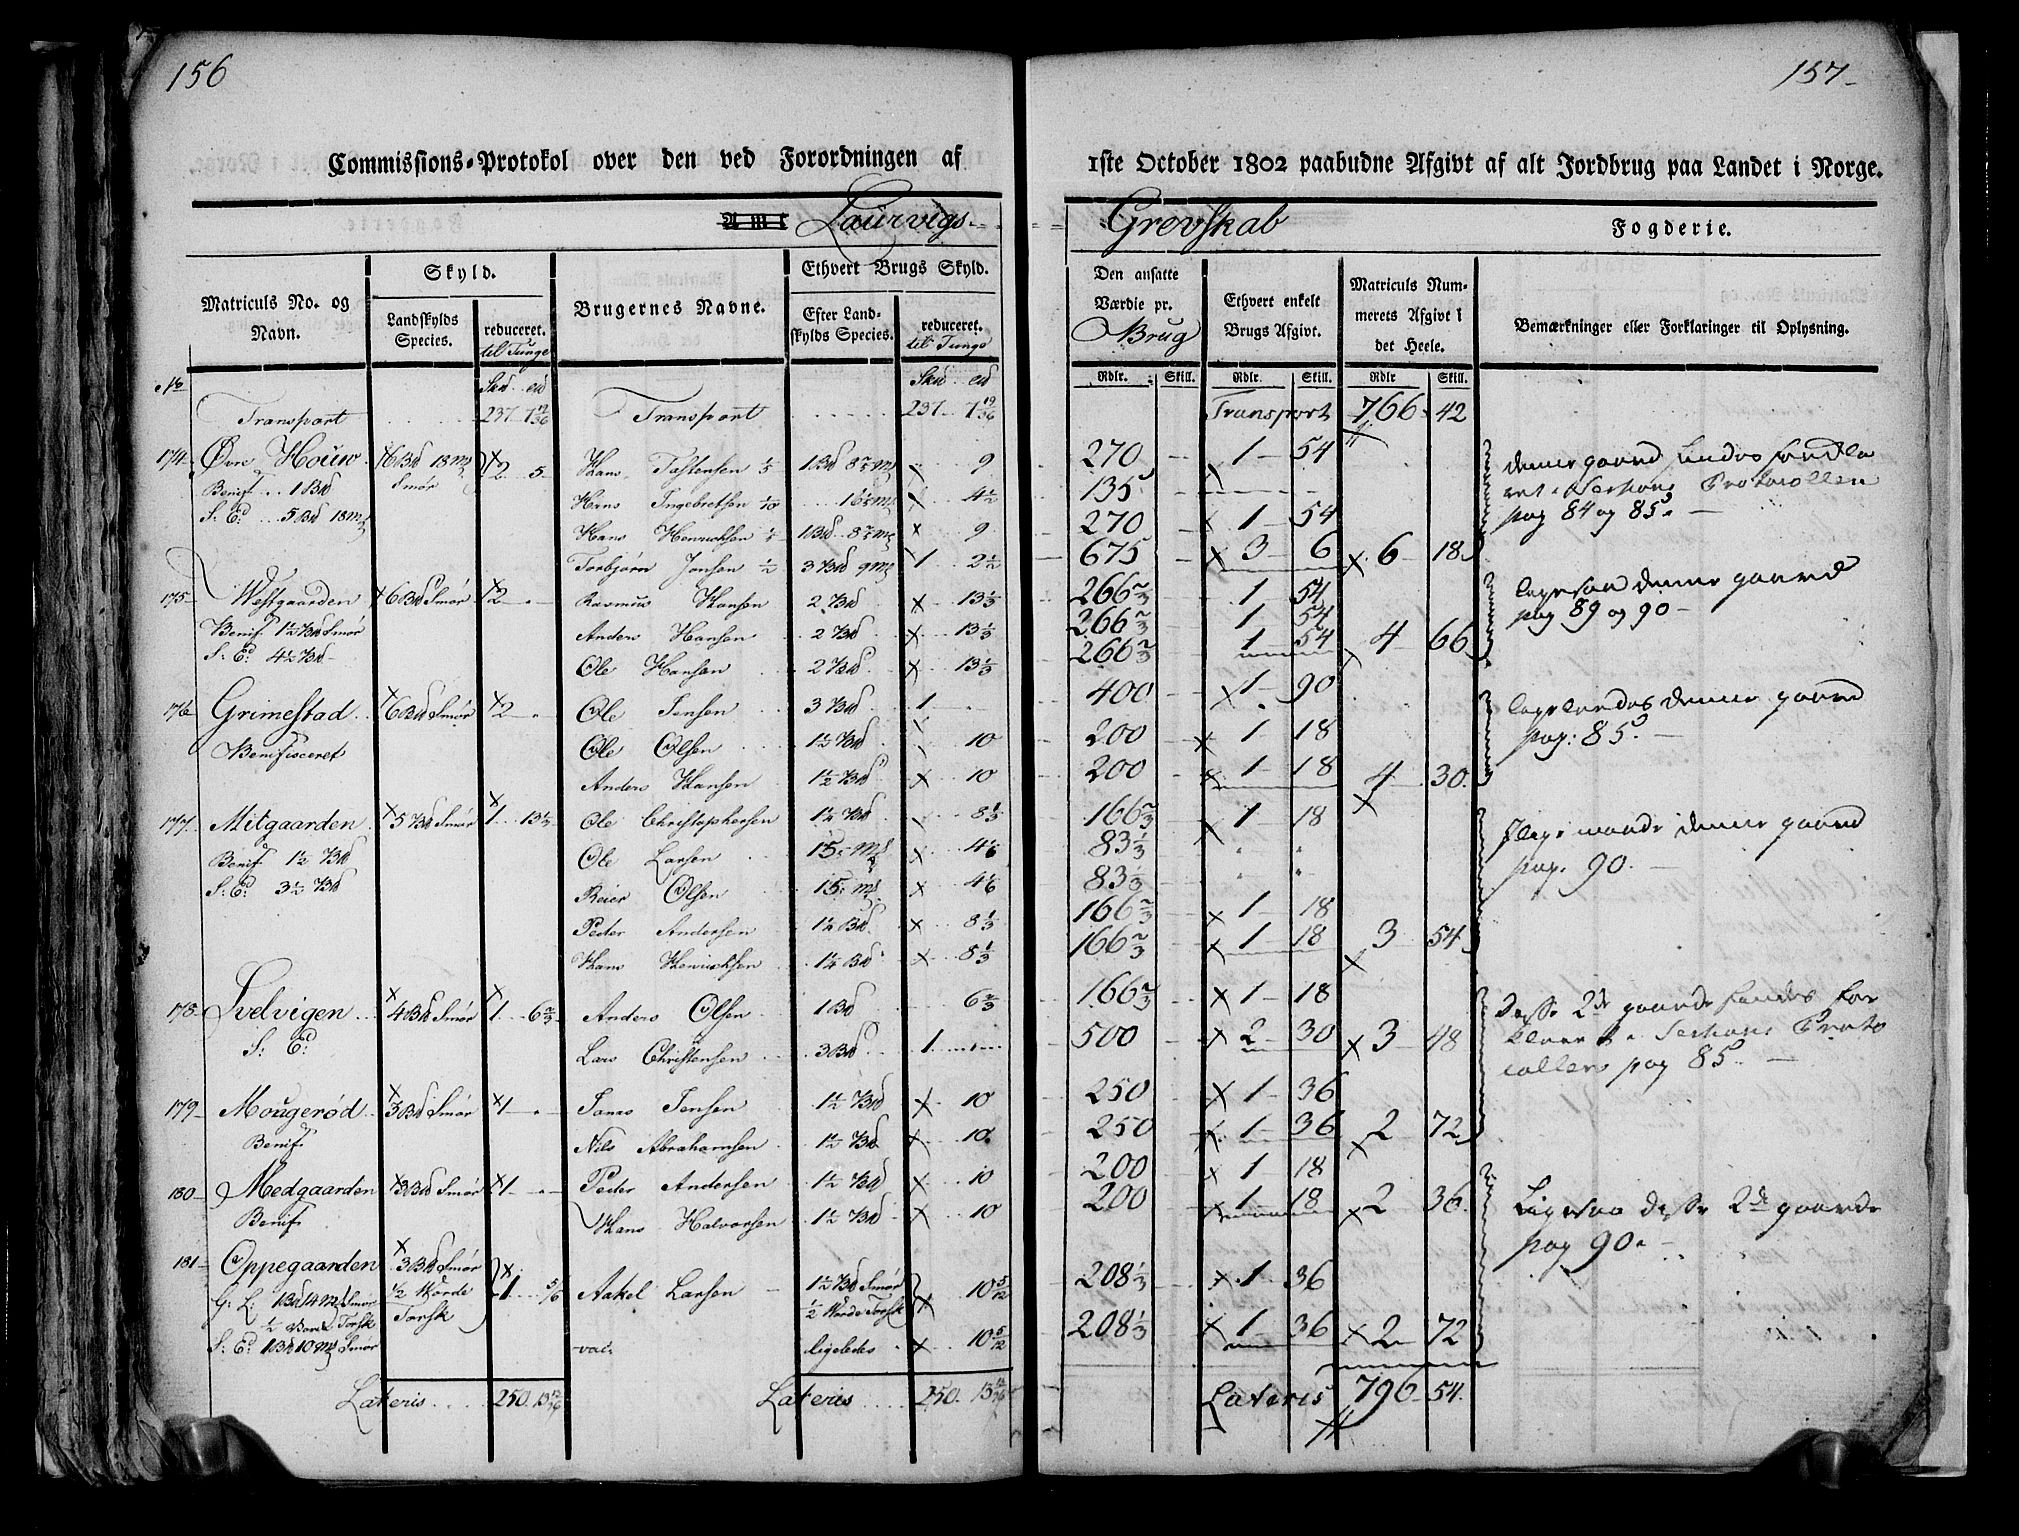 156
Commissions-Protokol over den ved Forordningen af
Amt Laurvigs
Matriculs No. og Navn.
Skyld.
Landskylds Species.
reduceret. til Tunge
Brugernes Navne.
Ethvert Brugs Skyld.
Efter Landskylds Species.
reduceret. til Tunge
No
Transport 237 Transport 237
174 Øvre Houw 6 Bd 18 mk Smør 2 5 Hans Tostensen 1/5 1 Bd 9
Benif. 1 Bd Hans Ingebretsen 1/10 4 1/2
S: E: 5 Bd 18 mk Hans Henrichsen 1/5 1 Bd 9
Torbjørn Jonsen 1/2 3 Bd 9 mk 1 2 1/2
175 Westgaarden 6 Bd Smør 2 Rasmus Hansen 2 Bd 13 1/3
Benif. 1 1/2 Bd Smør Anders Hansen 2 Bd 13 1/3
S: E: 4 1/2 Bd Ole Hansen 2 Bd 13 1/3
176 Grimestad 6 Bd Smør 2 Ole Jensen 3 Bd 1
Benifisceret Ole Olsen 1 1/2 Bd 10
Anders Hansen 1 1/2 Bd 10
177 Mitgaarden 5 Bd Smør 1 13 1/3 Ole Christophersen 1 1/4 Bd 8 1/3
Benif 1 1/2 Bd Ole Larsen 15 mk 4 1/6
S: E: 3 1/2 Bd Reier Olsen 15 mk 4 1/6
Peder Andersen 1 1/4 Bd 8 1/3
Hans Henrichsen 1 1/4 Bd 8 1/3
178 Svelvigen 4 Bd Smør 1 6 2/3 Anders Olsen 1 Bd 6 2/3
S: E: Lars Christensen 3 Bd 1
179 Mougerød 3 Bd Smør 1 Jens Jensen 1 1/2 Bd 10
Benif Nils Abrahamsen 1 1/2 Bd 10
180 Medgaarden 3 Bd Smør 1 Peder Andersen 1 1/2 Bd 10
Benif Hans Halvorsen 1 1/2 Bd 10
181 Oppegaarden 3 Bd Smør 1/2 Worde Torsk 1 5/6 Aakel Larsen 1 1/2 Bd Smør 1/2 Worde Torsk 10 5/12
G: L: 1 Bd 14 mk Smør
1/2 Torsk
S: E: 1 Bd 10 mk Smør ligeledes 10 5/12
Lateris 250 13 Lateris 250 13
157
1ste October 1802 paabudne Afgivt af alt Jordbrug paa Landet i Norge.
Grevskab Fogderie.
Den ansatte Værdie pr. Brug
Ethvert enkelt Brugs Afgivt.
Matriculs Nummerets Afgivt i det Heele.
Bemærkninger eller Forklaringer til Oplysning.
Rdlr. Skill. Rdlr. Skill. Rdlr Skill.
Transport 766 42
270 1 54 denne gaard findes
135 Protocollen
270 1 54 pag 84 og 85.
675 3 6 6 18
266 2/3 1 54 ligesaa denne gaard
266 2/3 1 54 pag 89 og 90
266 2/3 1 54 4 66
400 1 90 ligeledes denne gaard
200 1 18 pag: 85.
200 1 18 4 30
166 2/3 1 18 maade denne gaard
83 1/3 pag. 90.
83 1/3
166 2/3 1 18
166 2/3 1 18 3 54
166 2/3 1 18 Disse 2de gaarde findes for
500 2 30 3 48 klaret i Proto
collen pag 85.
250 1 36
250 1 36 2 72
200 1 18 Ligesaa disse 2de gaarde
200 1 18 2 36 pag 90.
208 1/3 1 36
208 1/3 1 36 2 72
Lateris 796 54